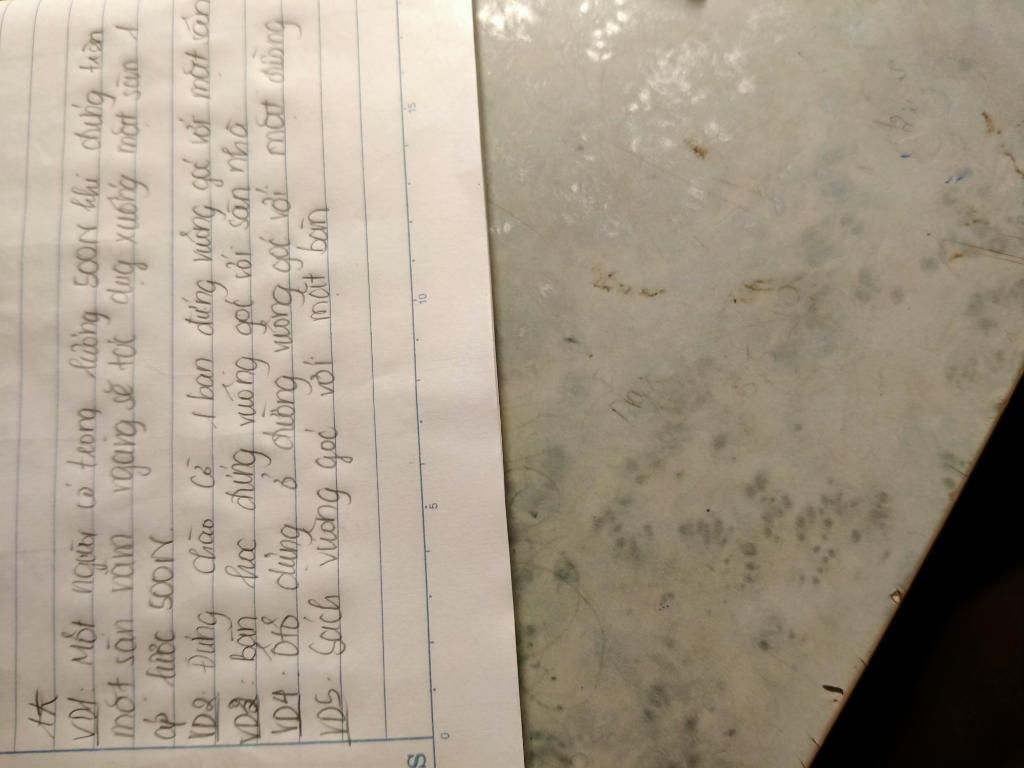 VD1. Một người có trọng lượng 500N khi đứng trên
một sàn nằm ngang sẽ tác dụng xuống mặt sàn 1
áp lực 500N
VD2. Đứng chào cờ, 1 bạn đứng vuông góc với mặt sân
VD3. bàn học đứng vuông góc với sàn nhà
VD4. đứng ở đường vuông góc với mặt đường
VD5. Sách vuông góc với mặt bàn
0 5 10 15
S